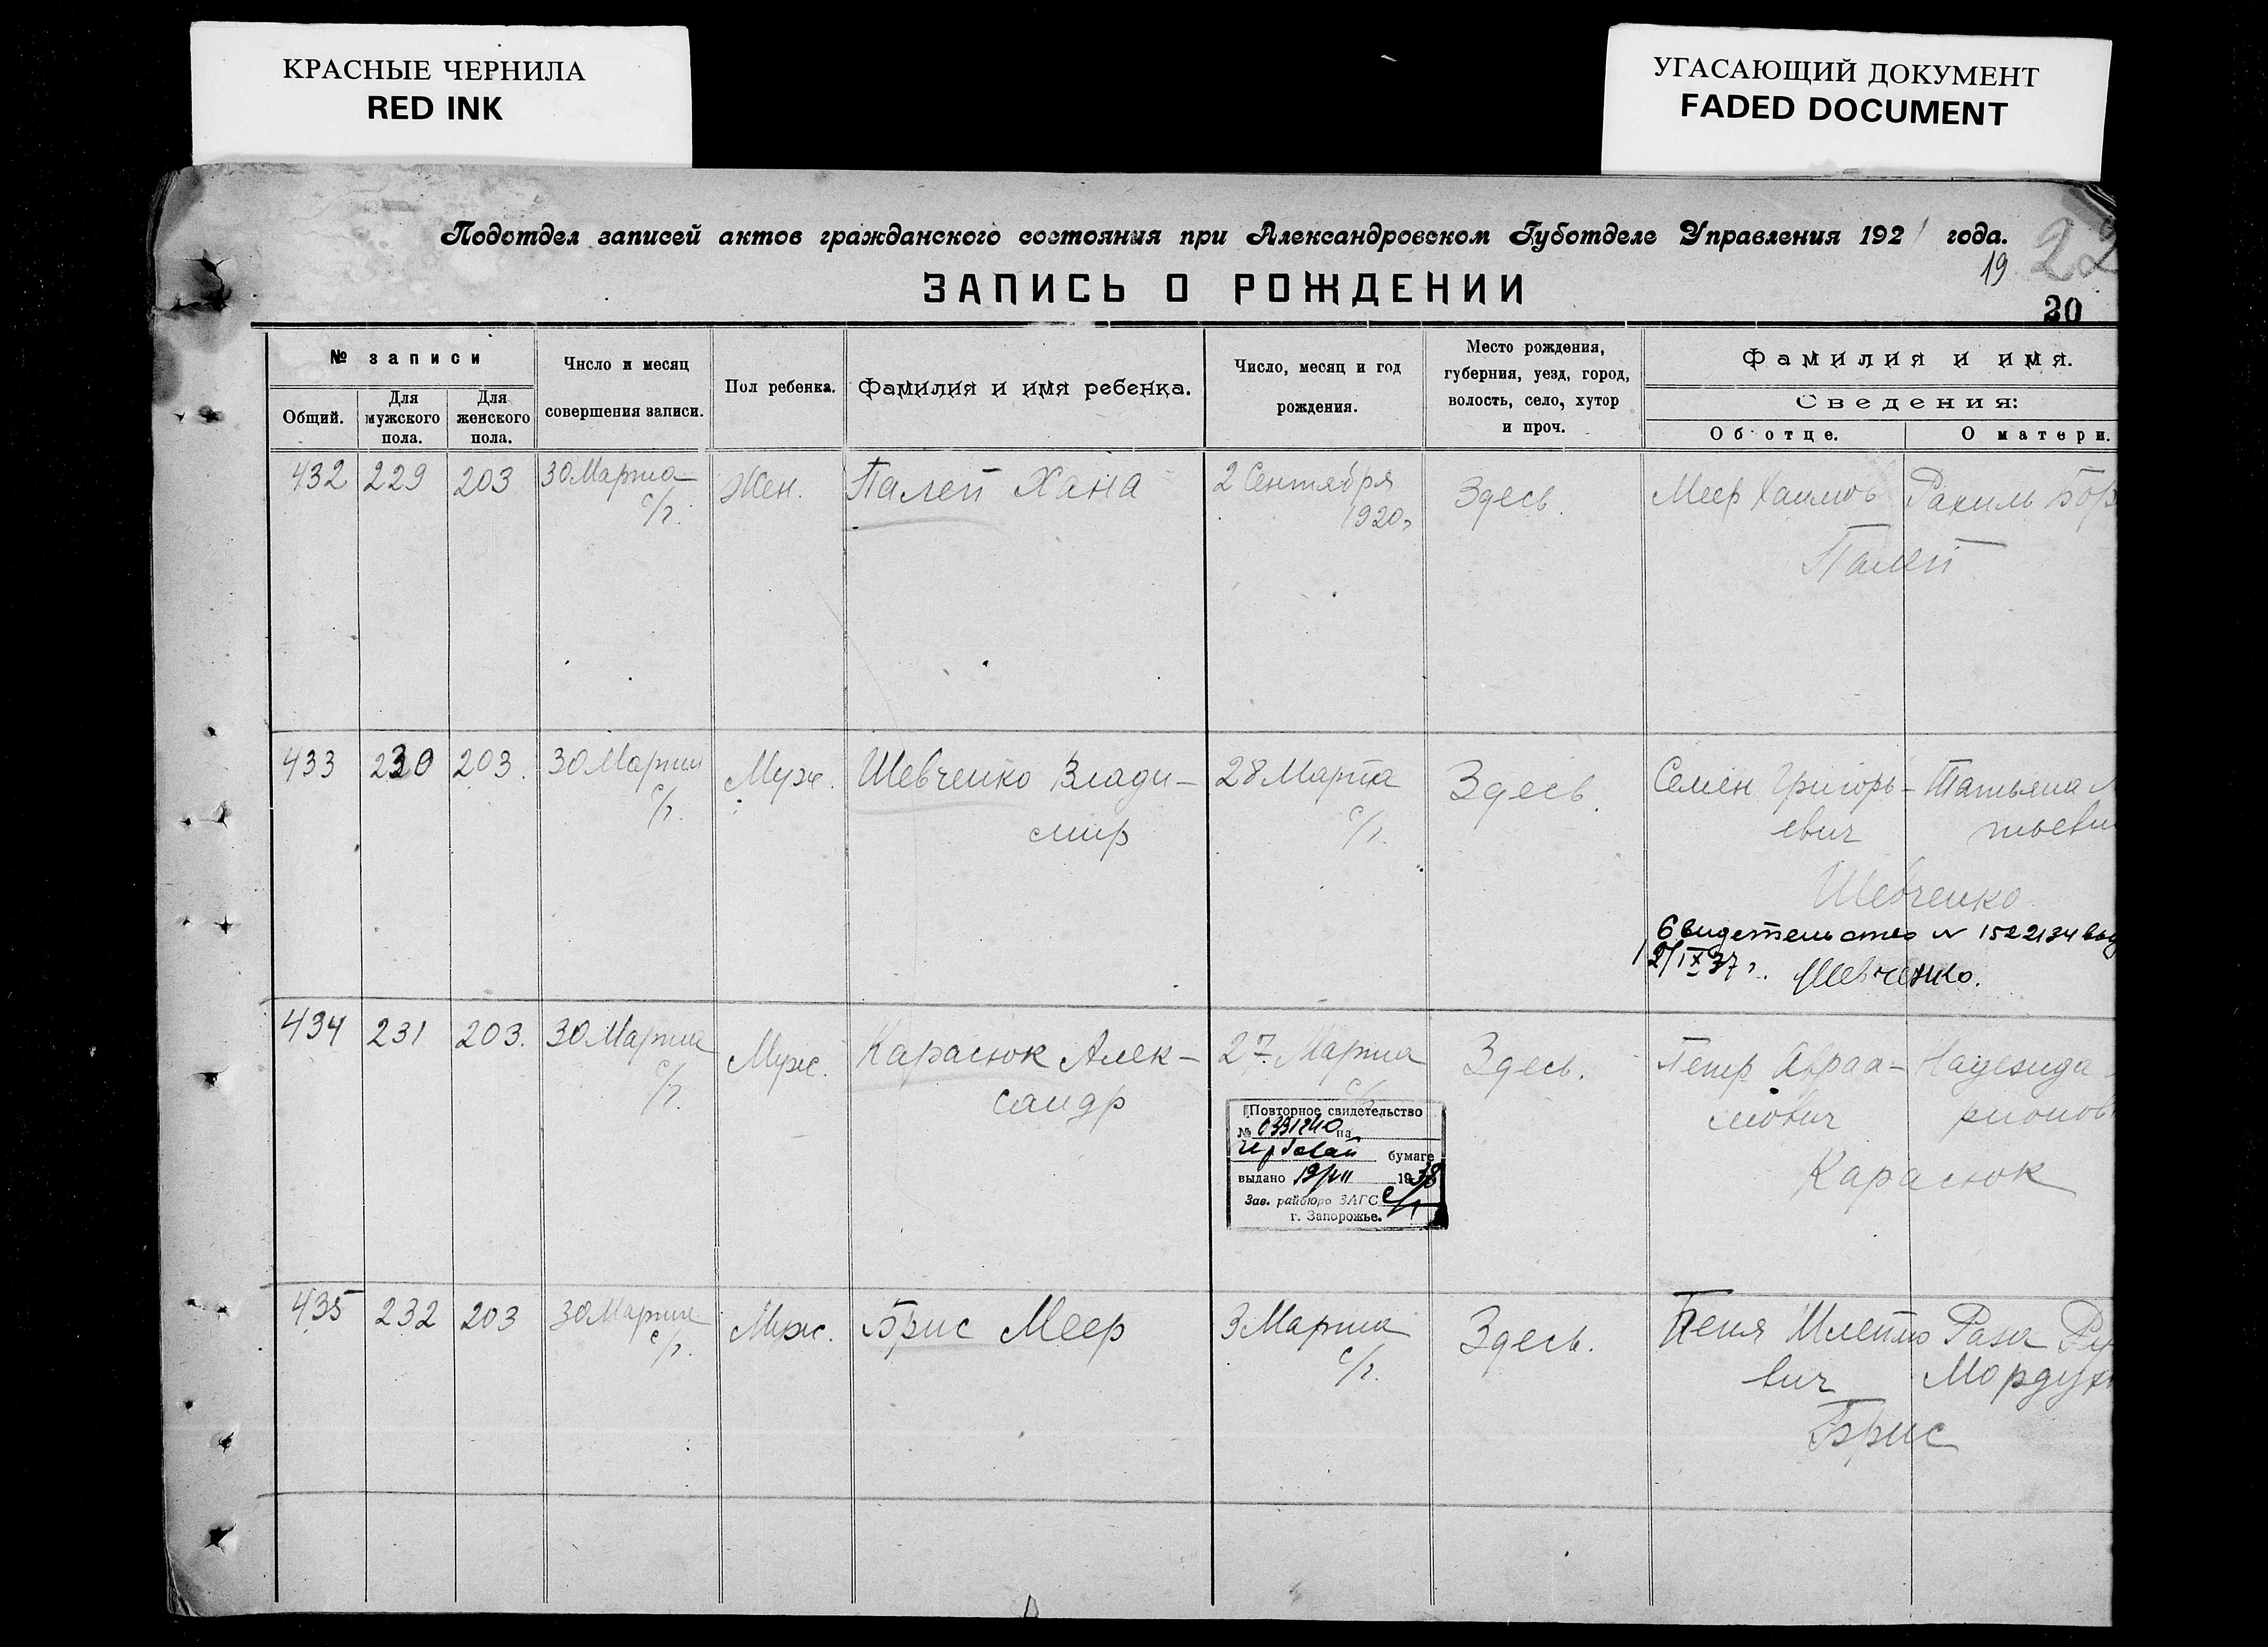 КРАСНЫЕ ЧЕРНИЛА
RED INK
УГАСАЮЩИЙ ДОКУМЕНТ
FADED DOCUMENT
Подотдел записей актов гражданского состояния при Александровском Губотделе Управления 1921 года.
22
19
ЗАПИСЬ О РОЖДЕНИИ
20
№ записи
Общий.
Для мужского пола.
Для женского пола.
Число и месяц совершения записи.
Пол ребенка.
Фамилия и имя ребенка.
Число, месяц и год рождения.
Место рождения, губерния, уезд, город, волость, село, хутор и проч.
Фамилия и имя.
Сведения:
Об отце.
О матери.
432 229 203 30 Марта Жен. Палей Хана 2 Сентября Здесь. Меер Хаимов Рахиль Бор
с/г. 1920г
Палей
433 230 203. 30 Марта Муж. Шевченко Влади- 28 Марта Здесь. Семен Григорь- Татьяна
с/г. мир с/г. евич тьевн
Шевченко
Свидетельство № 1522134 выд
12/IX 37 г. Шевченко.
434 231 203. 30 Марта Муж. Карасюк Алек- 27 Марта Здесь. Петр Авраа- Надежда
с/г. сандр с/г. мович рионов
Карасюк
Повторное свидетельство
№ 0331240 на
гербовой бумаге
выдано 19/VII 1938
Зав. райбюро ЗАГС
г. Запорожье.
435 232 203 30 Марта Муж. Брис Меер 3 Марта Здесь. Беня Шлемо Раза
с/г. с/г. вич Мордух
Брис